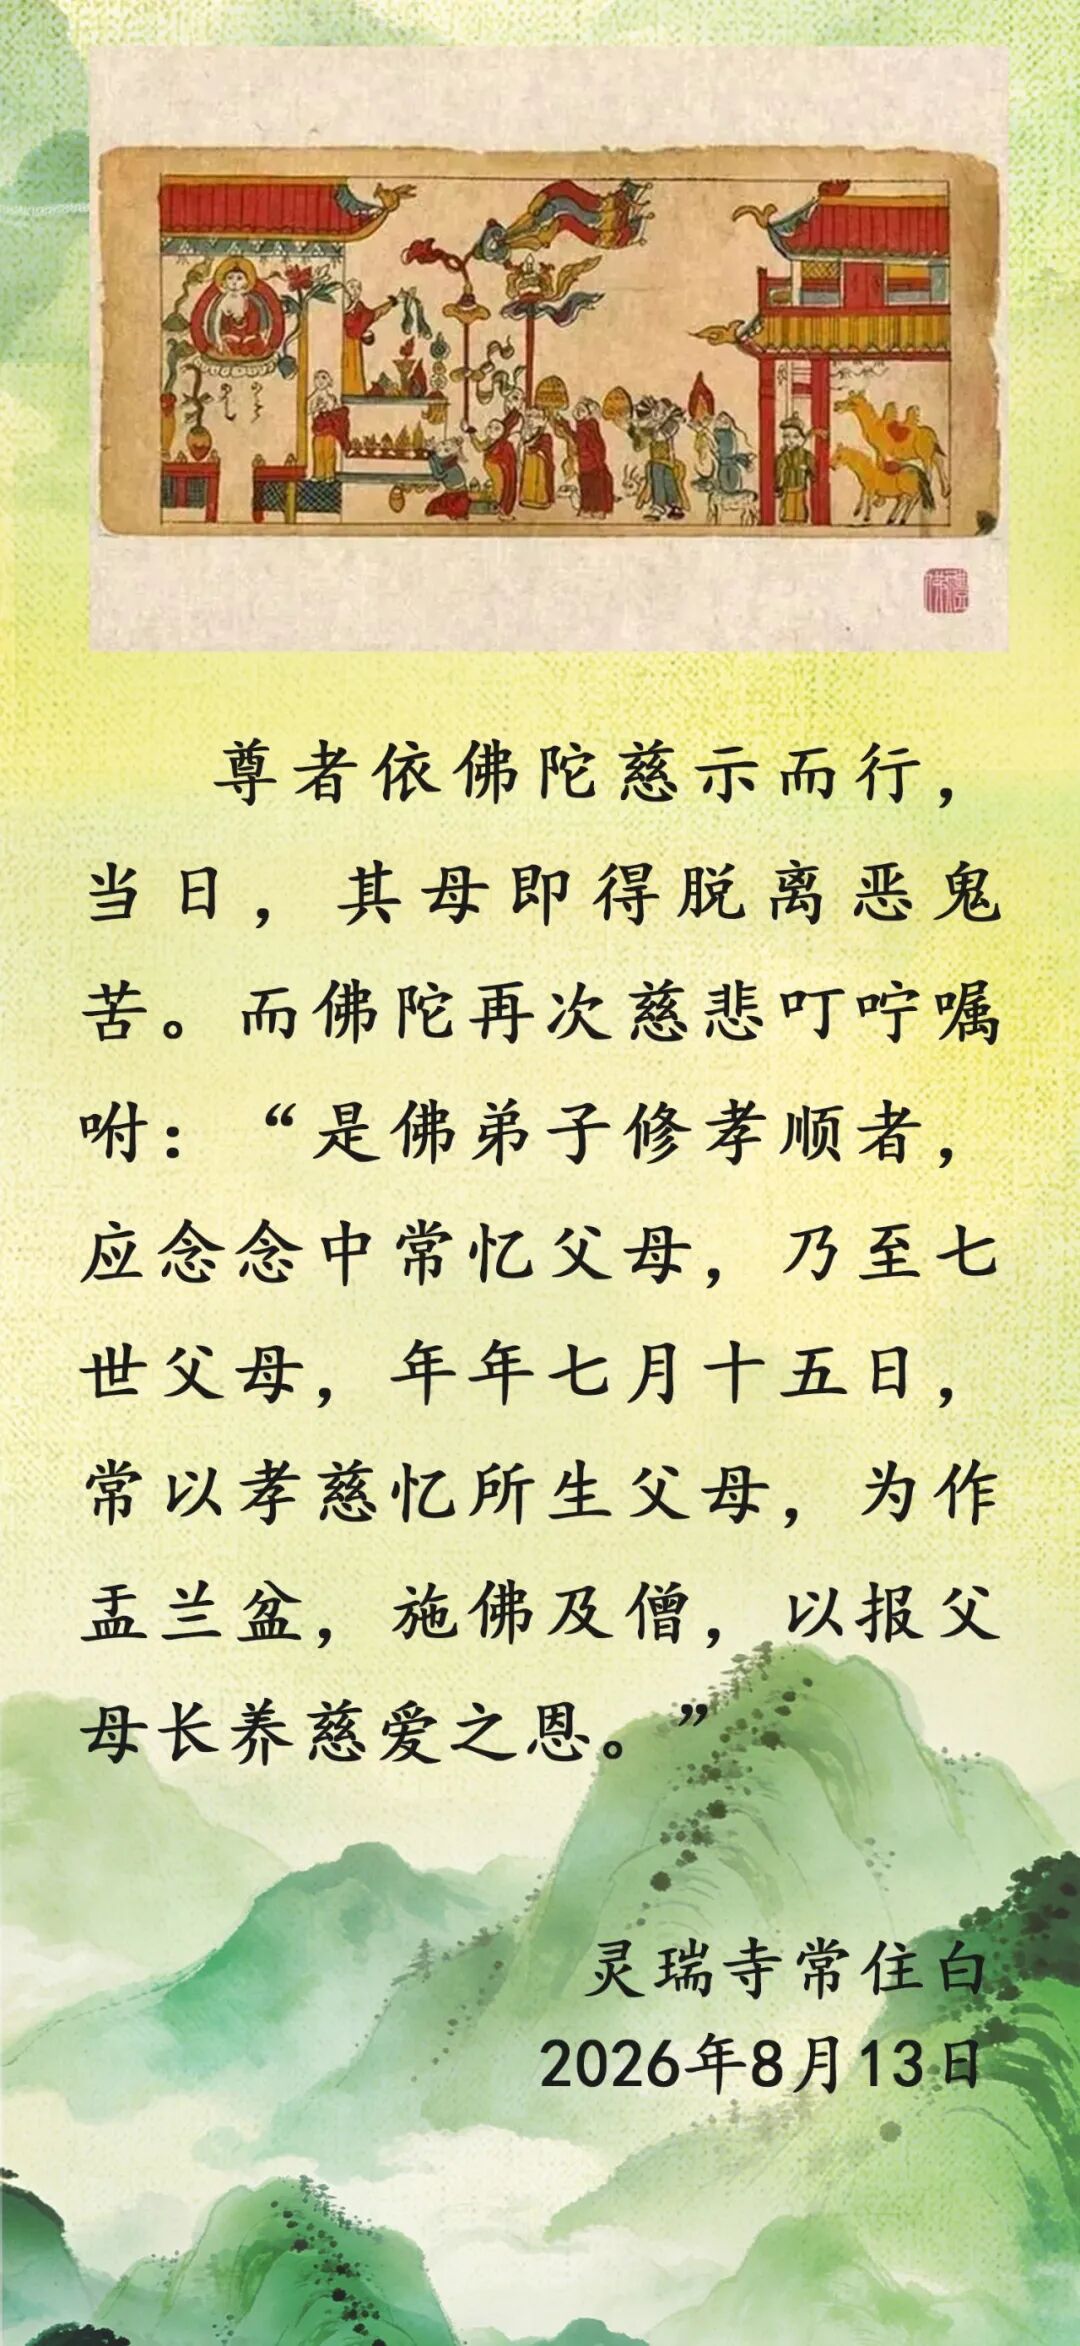 尊者依佛陀慈示而行，
当日，其母即得脱离恶鬼
苦。而佛陀再次慈悲叮咛嘱
咐：“是佛弟子修孝顺者，
应念念中常忆父母，乃至七
世父母，年年七月十五日，
常以孝慈忆所生父母，为作
盂兰盆，施佛及僧，以报父
母长养慈爱之恩。”
灵瑞寺常住白
2026年8月13日